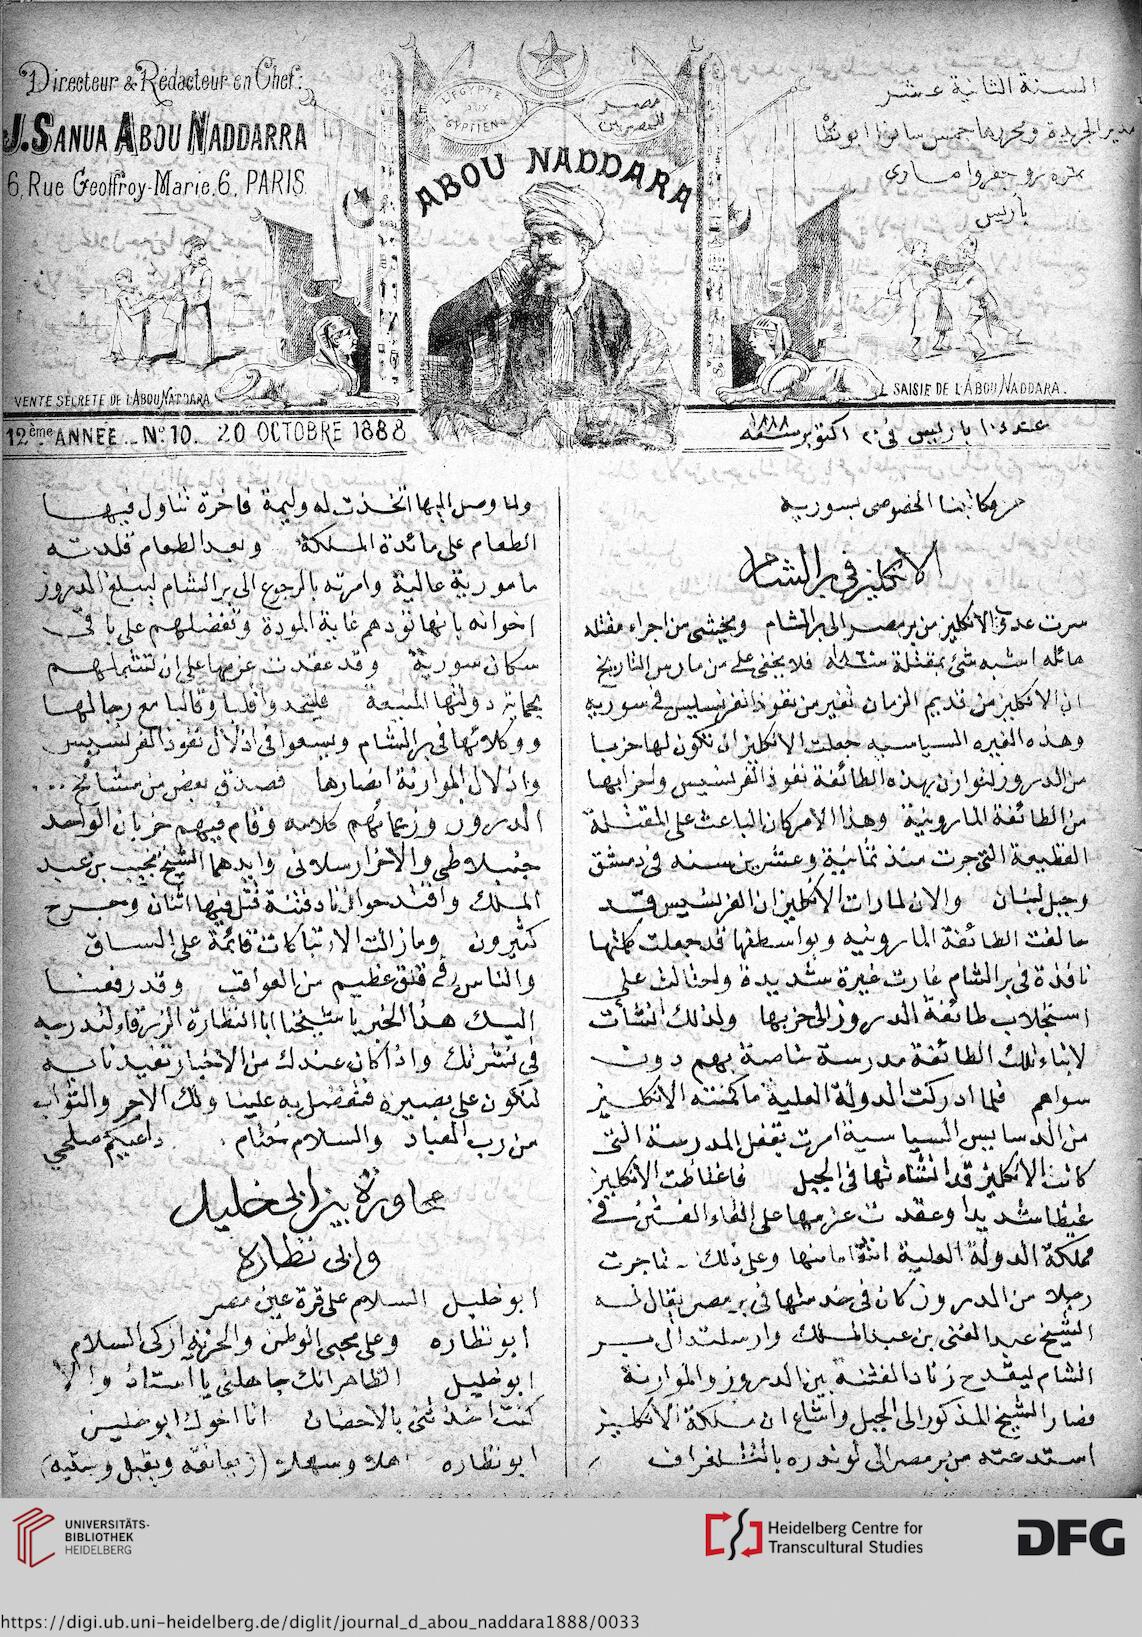 Directeur & Rédacteur en Chef:
J. SANUA ABOU NADDARRA
6, Rue Geoffroy-Marie, 6, PARIS
L'EGYPTE
AUX
EGYPTIENS
مصر
للمصريين
ABOU NADDARA
السنة الثانية عشر
مدير الجريدة ومحررها جمس سانوا ابو نظا
نمره ٦ رو جفروا ماري
باريس
VENTE SECRETE DE L'ABOU NADDARA
SAISIE DE L'ABOU NADDARA.
12ème ANNEE _ No. 10. 20 OCTOBRE 1888
عدد ١٠ باريس في ٢٠ اكتوبر سنة ١٨٨٨
من مكاتبنا الخصوصي بسورية
الانكليز في بر الشام
سرت عدوى الانكليز من بر مصر الى بر الشام ويخشى من اجراء مقتله
هائله اشبه شئ بمقتلة سنة ١٨٦٠ فلا يخفى على من مارس التاريخ
ان الانكليز من قديم الزمان تغير من نفوذ الفرنسيس في سوريه
وهذه الغيره السياسيه جعلت الانكليز ان تكون لها حزبا
من الدروز لتوازن بهذه الطائفة نفوذ الفرنسيس واحزابها
من الطائفة المارونية وهذا الامر كان الباعث على المقتلة
الفظيعة التي جرت منذ ثمانية وعشرين سنه في دمشق
وجبل لبنان والان لما رات الانكليز ان الفرنسيس قد
حالفت الطائفة المارونيه وبواسطتها قد جعلت كلمتها
نافذة في بر الشام غارت غيرة شديدة واحتالت على
استجلاب طائفة الدروز الى حزبها ولذلك انشأت
لابناء تلك الطائفة مدرسة خاصة بهم دون
سواهم فلما ادركت الدولة العلية ما كمنته الانكليز
من الدسايس السياسية امرت بقفل المدرسة التي
كانت الانكليز قد انشاءتها في الجبل فاغتاظت الانكليز
غيظا شديدا وعقدت عزمها على القاء الفتن في
مملكة الدولة العلية انتقاما منها وعلى ذلك
رجلا من الدروز كان في خدمتها في بر مصر يقال له
الشيخ عبد الغني بن عبد الملك وارسلته الى بر
الشام ليقدح زناد الفتنة بين الدروز والموارنة
فصار الشيخ المذكور الى الجبل واشاع ان ملكة الانكليز
استدعته من بر مصر الى لوندره بالتلغراف
ولما وصل اليها اتخذت له وليمة فاخرة تناول فيها
الطعام على مائدة الملكة وبعد الطعام قلدته
مامورية عالية وامرته بالرجوع الى بر الشام ليبلغ الدروز
اخوانه بانها تودهم غاية المودة وتفضلهم على باقي
سكان سورية وقد عقدت عزمها على ان تشملهم
بحماية دولتها المنيعة فليتحدوا قلبا وقالبا مع رجالها
ووكلائها في بر الشام ويسعوا في اذلال نفوذ الفرنسيس
واذلال الموارنة انصارها فصدق بعض من مشائخ ...
الدروز وزعمائهم كلامه وقام فيهم حزبان الواحد
جنبلاطي والاخر ارسلاني وايدهما الشيخ نجيب بن عبد
الملك واقتدحوا زناد فتنة قتل فيها اثنان وجرح
كثيرون وما زالت الارتباكات قائمة على الساق
والناس في قلق عظيم من العواقب وقد رفعنا
اليك هذا الخبر يا شيخنا ابا النظارة الزرقاء لتدرجه
في نشرتك واذا كان عندك من الاخبار تفيدنا به
لنكون على بصيرة فتفضل به علينا ولك الاجر والثواب
من رب العباد والسلام ختام. داعيكم صلحي
محاورة بين ابي خليل
وابي نظاره
ابو خليل السلام على قرة عين مصر
ابو نظاره وعلى محبي الوطن والحرية ازكى السلام
ابو خليل الظاهر انك جاهلني يا استاذ والا
كنت اخذتني بالاحضان انا اخوك ابو خليل
ابو نظاره اهلا وسهلا (ويعانقه ويقبل وجنتيه)
UNIVERSITÄTS-
BIBLIOTHEK
HEIDELBERG
Heidelberg Centre for
Transcultural Studies
DFG
https://digi.ub.uni-heidelberg.de/diglit/journal_d_abou_naddara1888/0033